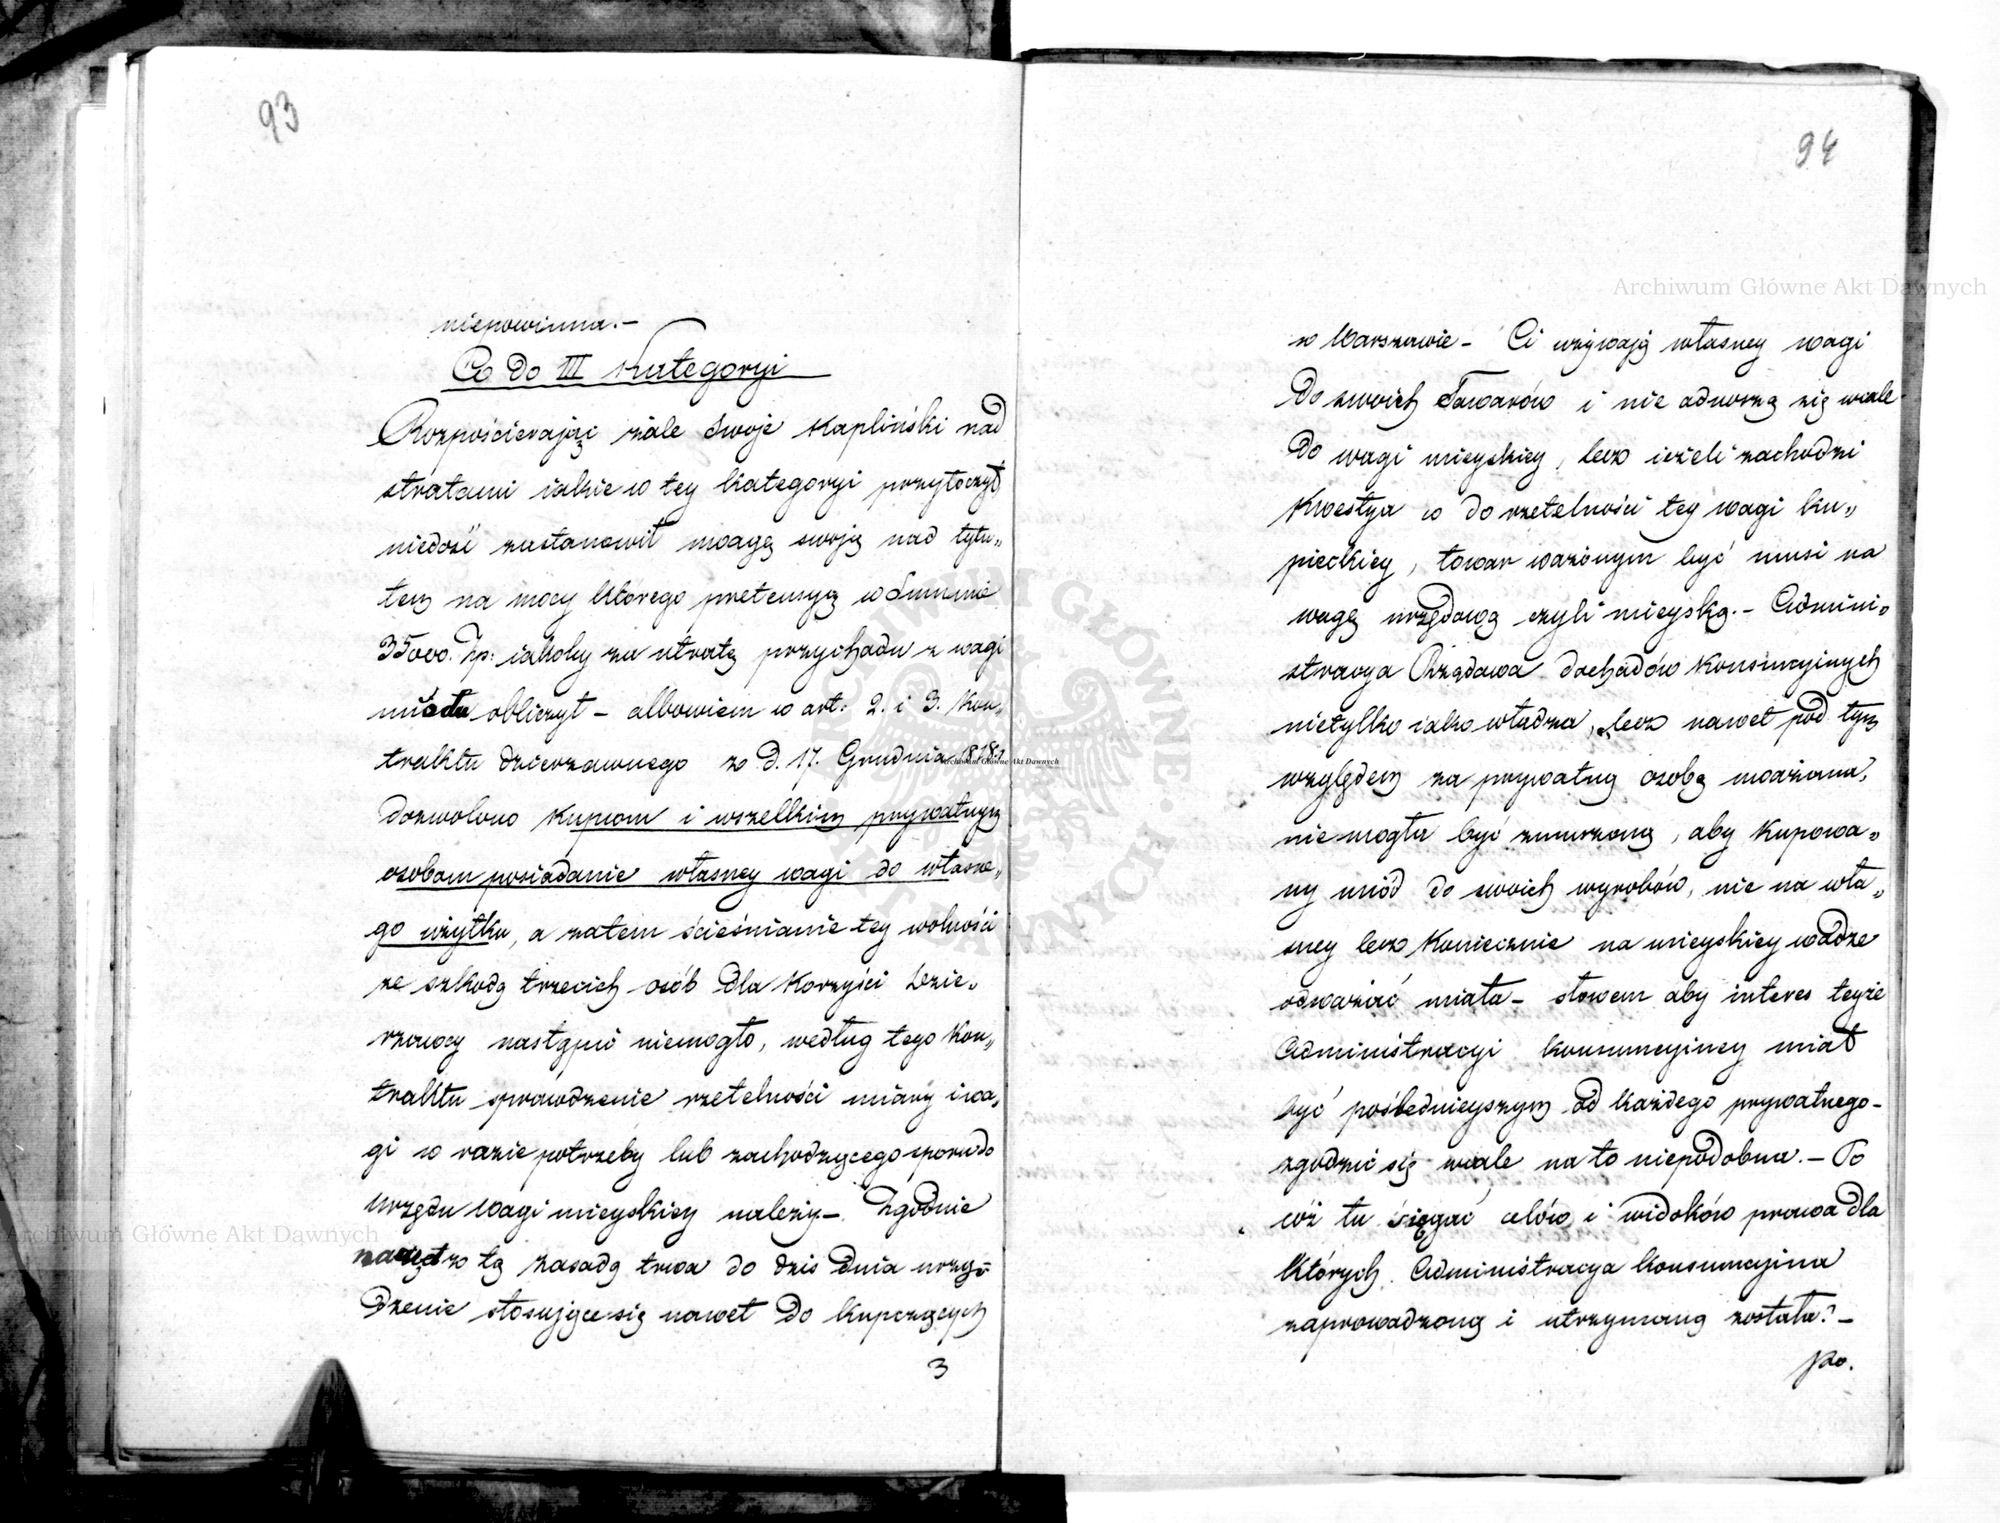 93
niepowinna.—
Co do III Kategoryi
Rozpościerając żale swoje Kapliński nad
stratami iakie w tey kategoryi przytoczył
niedość zastanowił uwagę swoją nad tytu„
łem na mocy którego pretensyą w Summie
35000. Zp: iakoby za utratę przychodu z wagi
miodu obliczył — albowiem w art: 2. i 3. Kon„
traktu dzierzawnego z d. 17. Grudnia 1818.r
dozwolono Kupcom i wszelkim prywatnym
osobom posiadanie własney wagi do własne„
go użytku, a zatem ścieśnianie tey wolności
ze szkodą trzecich osób dla Korzyści Dzie„
rzawcy nastąpić niemogło, według tego Kon„
traktu sprawdzenie rzetelności miary i wa„
gi w razie potrzeby lub zachodzącego sporu do
Urzędu Wagi mieyskiey należy —. Zgodnie
z tą zasadą trwa do dziś dnia urzą„
dzenie stosujące się nawet do kupczących
3
94
w Warszawie — Ci używają własney wagi
do swoich Towarów i nie odnoszą się wcale
do wagi mieyskiey, lecz ieżeli zachodzi
Kwestya co do rzetelności tey wagi ku„
pieckiey, towar ważonym być musi na
wagę urzędową czyli mieyską.— Admini„
stracya Rządowa dochodów Konsumcyinych
nietylko iako władza, lecz nawet pod tym
względem za prywatną osobę uważana,
niemogła być zmuszoną, aby Kupowa„
ny miód do swoich wyrobów, nie na wła„
sney lecz Koniecznie na mieyskiey wadze
odważać miała — słowem aby interes teyże
Administracyi konsumcyiney miał
być pośledniejszym od każdego prywatnego —
zgodzić się wcale na to niepodobna.— Po
cóż tu sięgać celów i widoków prawa dla
których Administracya konsumcyina
zaprowadzoną i utrzymaną została? —
po.
Archiwum Główne Akt Dawnych
Archiwum Główne Akt Dawnych
Archiwum Główne Akt Dawnych
ARCHIWUM GŁÓWNE AKT DAWNYCH